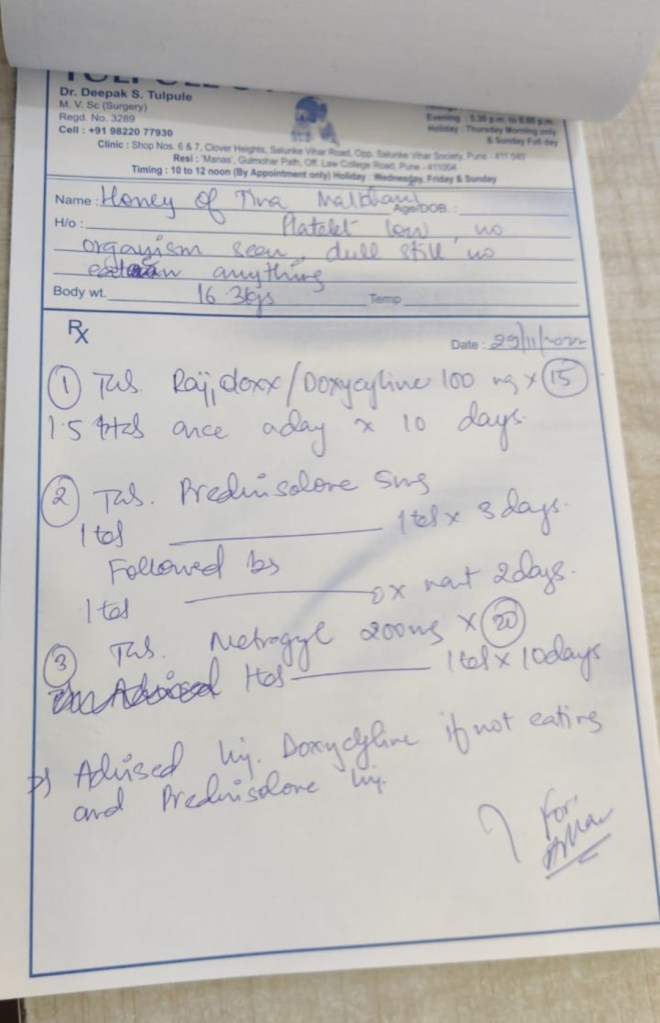 Dr. Deepak S. Tulpule
M. V. Sc (Surgery)
Regd. No. 3289
Cell : +91 98220 77930
Evening : 5.30 p.m. to 8.00 p.m.
Holiday : Thursday Morning only
& Sunday Full day
Clinic : Shop Nos. 6 & 7, Clover Heights, Salunke Vihar Road, Opp. Salunke Vihar Society, Pune - 411 040
Resi : 'Manas', Gulmohar Path, Off. Law College Road, Pune - 411004
Timing : 10 to 12 noon (By Appointment only) Holiday : Wednesday, Friday & Sunday
Name : Honey of Tina Age/DOB. :
H/o : Platelet low, no
organism seen, dull still no
anything
Body wt. 16.3kgs Temp
Rx
Date : 29/11/2022
① Tab. Doxycycline 100 mg x 15
1.5 tabs once a day x 10 days.
② Tab. Prednisolone 5mg
1 tab ——— 1 tab x 3 days.
Followed by
1 tab ——— 0 x next 2 days.
③ Tab. Metrogyl 200mg x 20
1 tab ——— 1 tab x 10 days
Advised Inj. Doxycycline if not eating
and Prednisolone Inj.
For